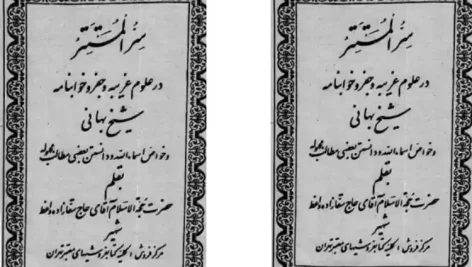 سِرُّ المُستَتِر
در علوم غریبه و جفر و خوابنامه
شیخ بهائی
و خواص اسماء الله و دانستن بعضی مطالب
بقلم
حضرت حجة الاسلام آقای حاج سقازاده واعظ
شهیر
مرکز فروش کلیه کتابفروشیهای معتبر تهران
سِرُّ المُستَتِر
در علوم غریبه و جفر و خوابنامه
شیخ بهائی
و خواص اسماء الله و دانستن بعضی مطالب
بقلم
حضرت حجة الاسلام آقای حاج سقازاده واعظ
شهیر
مرکز فروش کلیه کتابفروشیهای معتبر تهران